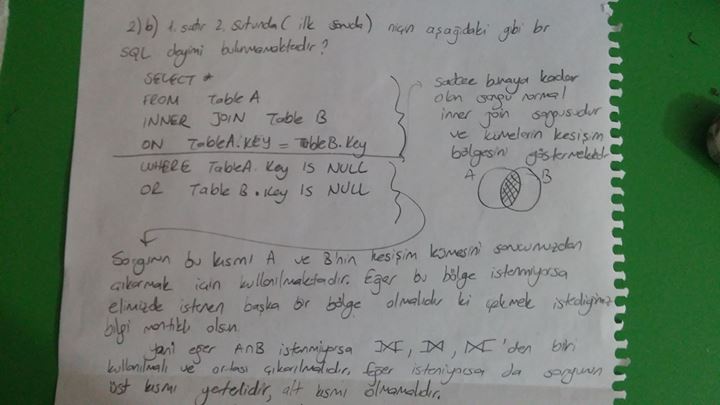 2) b) 1. satır 2. sutunda ( ilk soruda ) niçin aşağıdaki gibi bir
SQL deyimi bulunmamaktadır ?
SELECT *
FROM Table A
INNER JOIN Table B
ON TableA.KEY = TableB.Key
WHERE TableA. Key IS NULL
OR Table B . Key IS NULL
sadece buraya kadar
olan sorgu normal
inner join sorgusudur
ve kümelerin kesişim
bölgesini göstermektedir.
A B
Sorgunun bu kısmı A ve B'nin kesişim kümesini sonucumuzdan
çıkarmak için kullanılmaktadır. Eğer bu bölge istenmiyorsa
elimizde istenen başka bir bölge olmalıdır ki çekmek istediğimiz
bilgi mantıklı olsun.
Yani eğer A∩B istenmiyorsa ⟕, ⋈, ⟕'den biri
kullanılmalı ve ortası çıkarılmalıdır. Eğer isteniyorsa da sorgunun
üst kısmı yeterlidir, alt kısmı olmamalıdır.